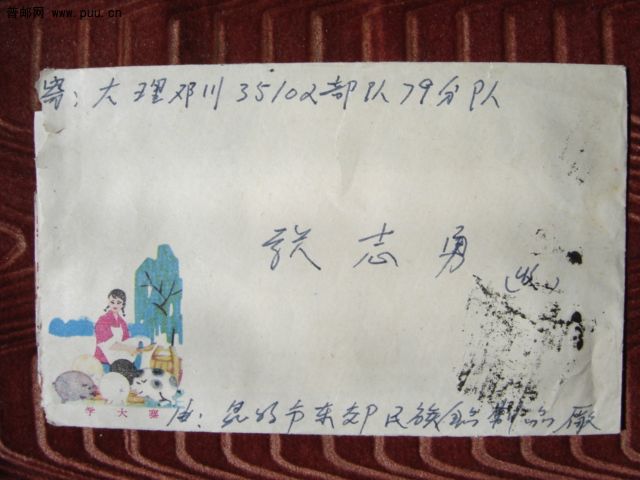 普邮网 www.puu.cn
寄：大理邓川35102部队79分队
张志勇
(收)
学大寨
由：昆明市东郊民族金属制品厂